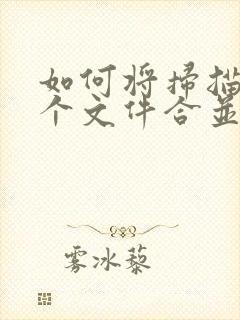 如何将掃描
个文件合並
雾冰藜